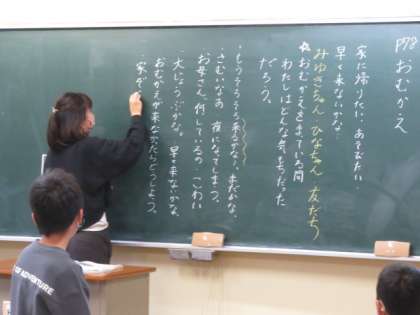 P79 おむかえ
家に帰りたい、あそびたい
早く来ないかな。
みゆきちゃん ひなちゃん 友だち
おむかえをまっている間
わたしはどんな気もちだった
だろう。
・もうそろそろ来るかな。まだかな。
・さむいなあ 夜になってしまう。
お母さん、何しているの こわい
・大じょうぶかな。早く来ないかな。
おむかえが来なかったらどうしよう。
・家が
OF ADVENTURE